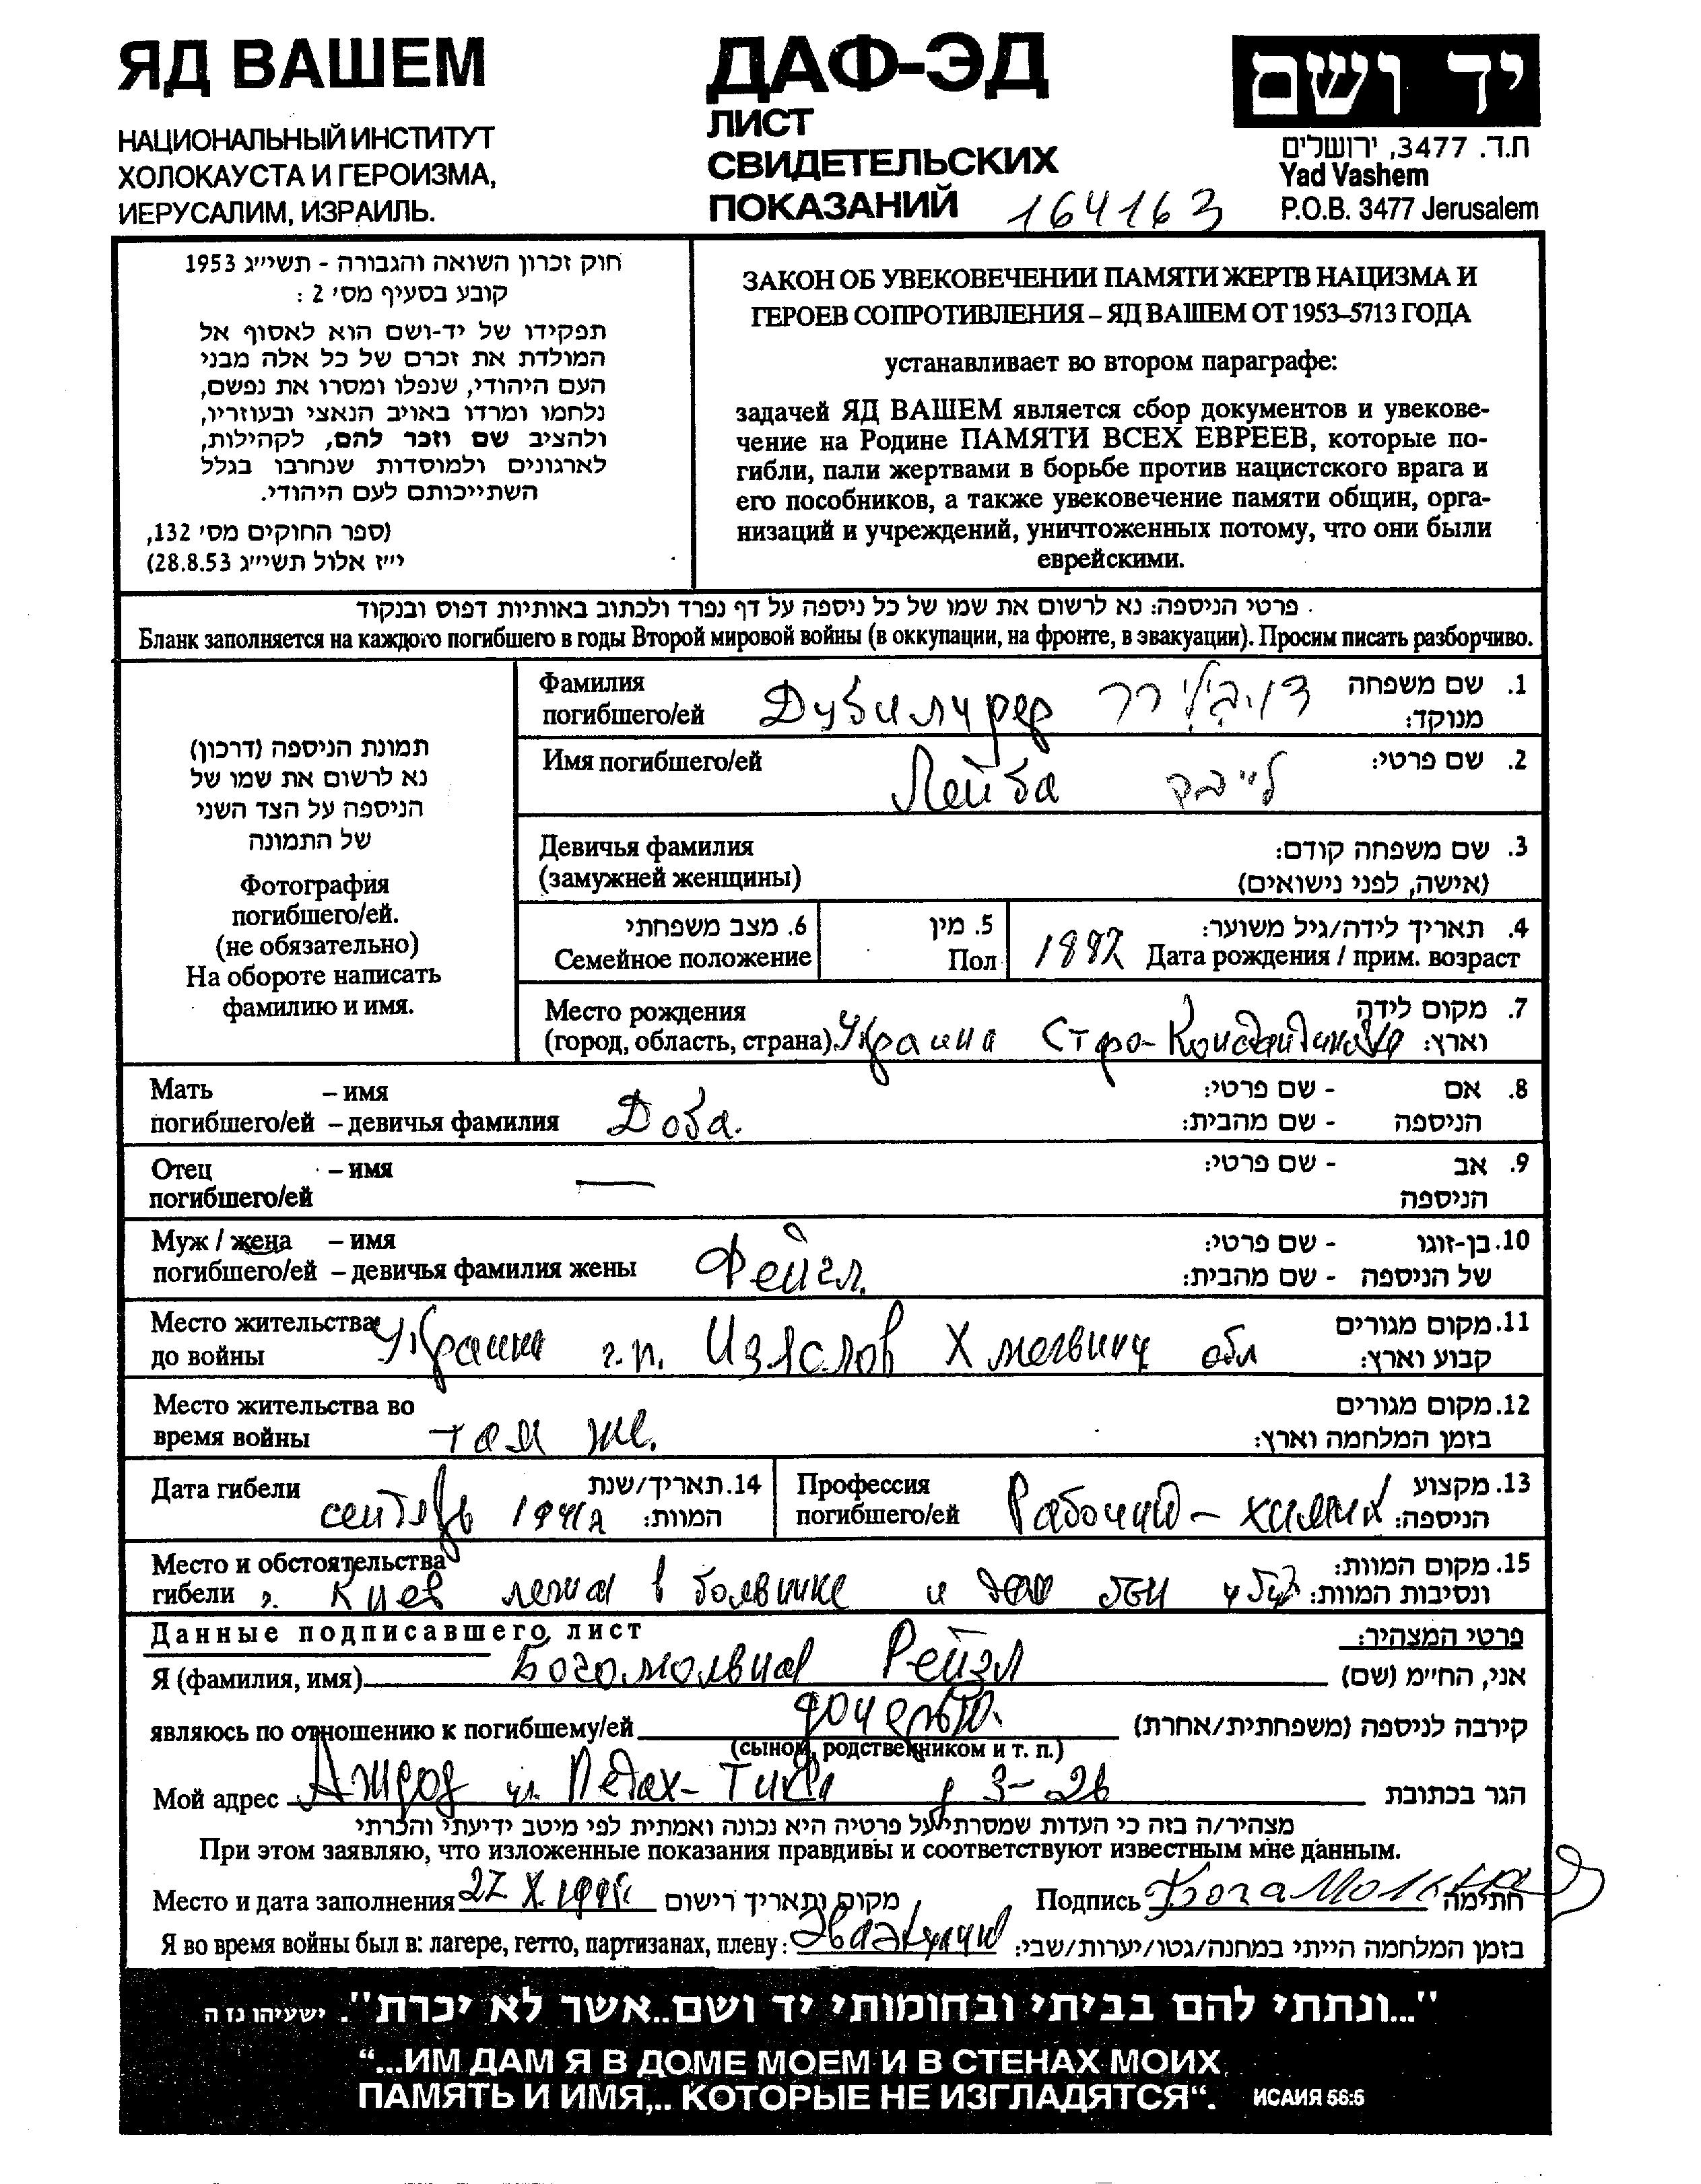 ЯД ВАШЕМ
НАЦИОНАЛЬНЫЙ ИНСТИТУТ
ХОЛОКАУСТА И ГЕРОИЗМА,
ИЕРУСАЛИМ, ИЗРАИЛЬ.
ДАФ-ЭД
ЛИСТ
СВИДЕТЕЛЬСКИХ
ПОКАЗАНИЙ 164163
יד ושם
ת.ד. 3477, ירושלים
Yad Vashem
P.O.B. 3477 Jerusalem
חוק זכרון השואה והגבורה - תשי״ג 1953
קובע בסעיף מס׳ 2 :
תפקידו של יד-ושם הוא לאסוף אל
המולדת את זכרם של כל אלה מבני
העם היהודי, שנפלו ומסרו את נפשם,
נלחמו ומרדו באויב הנאצי ובעוזריו,
ולהציב שם וזכר להם, לקהילות,
לארגונים ולמוסדות שנחרבו בגלל
השתייכותם לעם היהודי.
(ספר החוקים מס׳ 132,
י״ז אלול תשי״ג 28.8.53)
ЗАКОН ОБ УВЕКОВЕЧЕНИИ ПАМЯТИ ЖЕРТВ НАЦИЗМА И
ГЕРОЕВ СОПРОТИВЛЕНИЯ – ЯД ВАШЕМ ОТ 1953–5713 ГОДА
устанавливает во втором параграфе:
задачей ЯД ВАШЕМ является сбор документов и увекове-
чение на Родине ПАМЯТИ ВСЕХ ЕВРЕЕВ, которые по-
гибли, пали жертвами в борьбе против нацистского врага и
его пособников, а также увековечение памяти общин, орга-
низаций и учреждений, уничтоженных потому, что они были
еврейскими.
פרטי הניספה: נא לרשום את שמו של כל ניספה על דף נפרד ולכתוב באותיות דפוס ובנקוד
Бланк заполняется на каждого погибшего в годы Второй мировой войны (в оккупации, на фронте, в эвакуации). Просим писать разборчиво.
תמונת הניספה (דרכון)
נא לרשום את שמו של
הניספה על הצד השני
של התמונה
Фотография
погибшего/ей.
(не обязательно)
На обороте написать
фамилию и имя.
Фамилия
погибшего/ей Дубилирер
1. שם משפחה
מנוקד:
Имя погибшего/ей Лейба לייבק 2. שם פרטי:
Девичья фамилия
(замужней женщины)
3. שם משפחה קודם:
(אישה, לפני נישואים)
6. מצב משפחתי
Семейное положение
5. מין
Пол
4. תאריך לידה/גיל משוער:
Дата рождения / прим. возраст
Место рождения
(город, область, страна) Украина
7. מקום לידה
וארץ:
Мать – имя
погибшего/ей – девичья фамилия Доба.
8. אם - שם פרטי:
הניספה - שם מהבית:
Отец – имя
погибшего/ей —
9. אב - שם פרטי:
הניספה
Муж / жена – имя
погибшего/ей – девичья фамилия жены Фейгл.
10. בן-זוגו - שם פרטי:
של הניספה - שם מהבית:
Место жительства
до войны Украина г.п. Изяслов обл
11. מקום מגורים
קבוע וארץ:
Место жительства во
время войны там же.
12. מקום מגורים
בזמן המלחמה וארץ:
Дата гибели сентябрь 1941
14. תאריך/שנת
המוות:
Профессия
погибшего/ей Рабочий – химик
13. מקצוע
הניספה:
Место и обстоятельства
гибели г. Киев лежал в больнице и
15. מקום המוות:
ונסיבות המוות:
Данные подписавшего лист
פרטי המצהיר:
Я (фамилия, имя) Богомольная Рейзл אני, החי״מ (שם)
являюсь по отношению к погибшему/ей дочерью. קירבה לניספה (משפחתית/אחרת)
(сыном, родственником и т. п.)
Мой адрес Ашдод ул. Петах-Тиква д 3-26 הגר בכתובת
מצהיר/ה בזה כי העדות שמסרתי על פרטיה היא נכונה ואמתית לפי מיטב ידיעתי והכרתי
При этом заявляю, что изложенные показания правдивы и соответствуют известным мне данным.
Место и дата заполнения 27 X מקום ותאריך רישום Подпись חתימה
Я во время войны был в: лагере, гетто, партизанах, плену: эвакуации בזמן המלחמה הייתי במחנה/גטו/יערות/שבי:
"...ונתתי להם בביתי ובחומותי יד ושם..אשר לא יכרת". ישעיהו נז ה
“...ИМ ДАМ Я В ДОМЕ МОЕМ И В СТЕНАХ МОИХ
ПАМЯТЬ И ИМЯ,.. КОТОРЫЕ НЕ ИЗГЛАДЯТСЯ“. ИСАИЯ 56:5